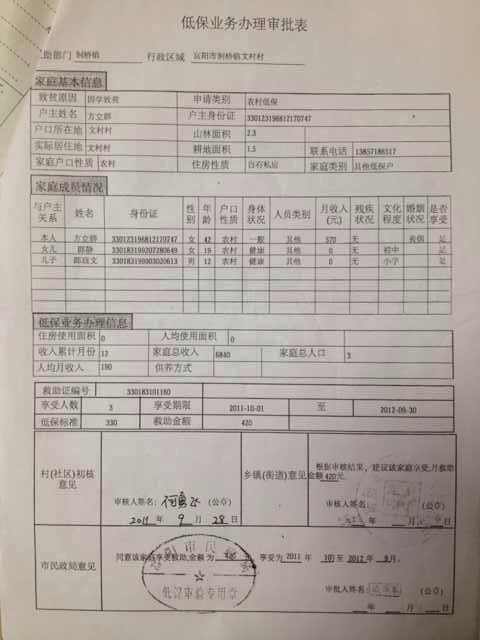 低保业务办理审批表
助部门 洞桥镇 行政区域 富阳市洞桥镇文村村
家庭基本信息
致贫原因 因学致贫 申请类别 农村低保
户主姓名 方立群 户主身份证 330123196812170747
户口所在地 文村村 山林面积 2.3
实际居住地 文村村 耕地面积 1.5 联系电话 13857186317
家庭户口性质 农村 住房性质 自有私房 家庭类别 其他低保户
家庭成员情况
与户主关系 姓名 身份证 性别 年龄 户口性质 身体状况 人员类别 月收入(元) 残疾状况 文化程度 婚姻状况 是否享受
本人 方立群 330123196812170747 女 42 农村 一般 其他 570 无 丧偶 是
女儿 330183199207280649 女 19 农村 健康 其他 0 无 初中 是
儿子 330183199903020613 男 12 农村 健康 其他 0 无 小学 是
低保业务办理信息
住房使用面积 0 人均使用面积 0
收入累计月份 12 家庭总收入 6840 家庭总人口 3
人均月收入 190 供养方式
救助证编号 330183101160
享受人数 3 享受期限 2011-10-01 至 2012-09-30
低保标准 330 救助金额 420
村(社区)初核意见 乡镇(街道)意见 根据审核结果，建议该家庭享受,月救助金额420元.
审核人签名: (公章) 审核人签名: (公章)
2011 年 9 月 28 日 年 月 日
市民政局意见 同意该家庭享受救助,金额为 元, 享受为2011 年 10月至 2012 年 9月.
低保审核专用章
审批人签名: (公章)
年 月 日